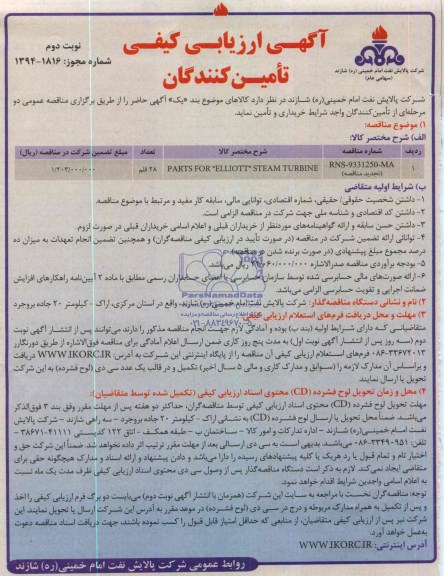 شرکت پالایش نفت امام خمینی (ره) شازند
(سهامی عام)
آگهی ارزیابی کیفی
تأمین‌کنندگان
نوبت دوم
شماره مجوز: ۱۸۱۶-۱۳۹۴
شرکت پالایش نفت امام خمینی(ره) شازند در نظر دارد کالاهای موضوع بند «یک» آگهی حاضر را از طریق برگزاری مناقصه عمومی دو
مرحله‌ای از تأمین‌کنندگان واجد شرایط خریداری و تأمین نماید.
۱) موضوع مناقصه:
الف) شرح مختصر کالا:
ردیف شماره مناقصه شرح مختصر کالا تعداد مبلغ تضمین شرکت در مناقصه (ریال)
۱ RNS-9331250-MA (تجدید مناقصه) PARTS FOR "ELLIOTT" STEAM TURBINE ۲۸ قلم ۱/۲۰۳/۰۰۰/۰۰۰
ب) شرایط اولیه متقاضی
۱- داشتن شخصیت حقوقی/ حقیقی، شماره اقتصادی، توانایی مالی، سابقه کار مفید و مرتبط با موضوع مناقصه.
۲- داشتن کد اقتصادی و شناسه ملی جهت شرکت در مناقصه الزامی است.
۳- داشتن حسن سابقه و ارائه گواهینامه‌های موردنظر از خریداران قبلی و اعلام اسامی خریداران قبلی در صورت لزوم.
۴- توانائی ارائه تضمین شرکت در مناقصه (در صورت تأیید در ارزیابی کیفی مناقصه‌گران) و همچنین تضمین انجام تعهدات به میزان ده
درصد مجموع مبلغ پیشنهادی (در صورت برنده شدن در مناقصه)
۵- بودجه برآوردی مناقصه صدرالاشاره ریال می‌باشد.
۶- ارائه صورت‌های مالی حسابرسی شده توسط سازمان حسابرسی یا اعضای حسابداران رسمی مطابق با ماده ۲ آیین‌نامه راهکارهای افزایش
ضمانت اجرایی و تقویت حسابرسی الزامی می‌باشد.
۲) نام و نشانی دستگاه مناقصه‌گذار: شرکت پالایش نفت امام خمینی(ره) شازند، واقع در استان مرکزی، اراک - کیلومتر ۲۰ جاده بروجرد
۳) مهلت و محل دریافت فرم‌های استعلام ارزیابی کیفی:
متقاضیانی که دارای شرایط اولیه (بند ب) بوده و آمادگی لازم جهت انجام مناقصه مذکور را دارند می‌توانند پس از انتشار آگهی نوبت
دوم (سه روز پس از انتشار آگهی نوبت اول) به مدت پنج روز کاری ضمن ارسال اعلام آمادگی برای مناقصه فوق‌الاشاره از طریق دورنگار
۰۸۶-۳۳۶۷۲۰۱۳ فرم‌های استعلام ارزیابی کیفی آن مناقصه را از پایگاه اینترنتی این شرکت به آدرس: WWW.IKORC.IR دریافت
و براساس آن مدارک لازمه را (سوابق و مدارک کاری و مالی ۵ سال اخیر) تکمیل و در قالب یک عدد سی دی (لوح فشرده) به این شرکت
تحویل یا ارسال نمایند.
۴) محل و زمان تحویل لوح فشرده (CD) محتوی اسناد ارزیابی کیفی (تکمیل شده توسط متقاضیان):
مهلت تحویل لوح فشرده (CD) محتوی اسناد ارزیابی کیفی توسط مناقصه‌گران، حداکثر دو هفته پس از مهلت مقرر وفق بند ۳ فوق‌الذکر
می‌باشد. ضمناً محل تحویل یا ارسال لوح فشرده (CD) به نشانی اراک - کیلومتر ۲۰ جاده بروجرد - سه راهی شازند - شرکت پالایش
نفت امام خمینی(ره) شازند - اداره تدارکات و امور کالا - ساختمان ب - طبقه همکف - اتاق ۱۲۲ کدپستی ۴۱۱۱۱-۳۸۶۷۱
تلفن: ۰۸۶-۳۳۴۹۰۹۵۱ می‌باشد. بدیهی است به سی دی ارسالی بعد از مهلت مقرر ترتیب اثر داده نخواهد شد. ضمناً این شرکت حق و
اختیار تام و تمام قبول یا رد هریک یا کلیه پیشنهادهای رسیده را دارا می‌باشد و دادن پیشنهاد و ارائه اسناد و مدارک هیچگونه حقی برای
متقاضی ایجاد نمی‌کند. لازم به ذکر است دستگاه مناقصه‌گذار پس از وصول سی دی محتوی اسناد ارزیابی کیفی ظرف مدت یک ماه نسبت
به اعلام اسامی واجدین شرایط اقدام خواهد نمود.
توجه: مناقصه‌گران نخست با مراجعه به سایت این شرکت (همزمان با انتشار آگهی نوبت دوم) می‌بایست دو برگ فرم ارزیابی کیفی را اخذ
و پس از تکمیل به همراه مدارک مربوطه و درج در سی دی (لوح فشرده) در موعد مقرر به آدرس این شرکت ارسال یا تحویل نمایند. این
شرکت نیز پس از ارزیابی کیفی متقاضیان، از منابعی که حداقل امتیاز قابل قبول را کسب نموده باشند، جهت دریافت اسناد مناقصه دعوت
به‌عمل خواهد آورد.
آدرس اینترنتی: WWW.IKORC.IR
روابط عمومی شرکت پالایش نفت امام خمینی (ره) شازند
ParsNamadData
۰۲۱-۸۸۳۴۹۶۷۰-۵